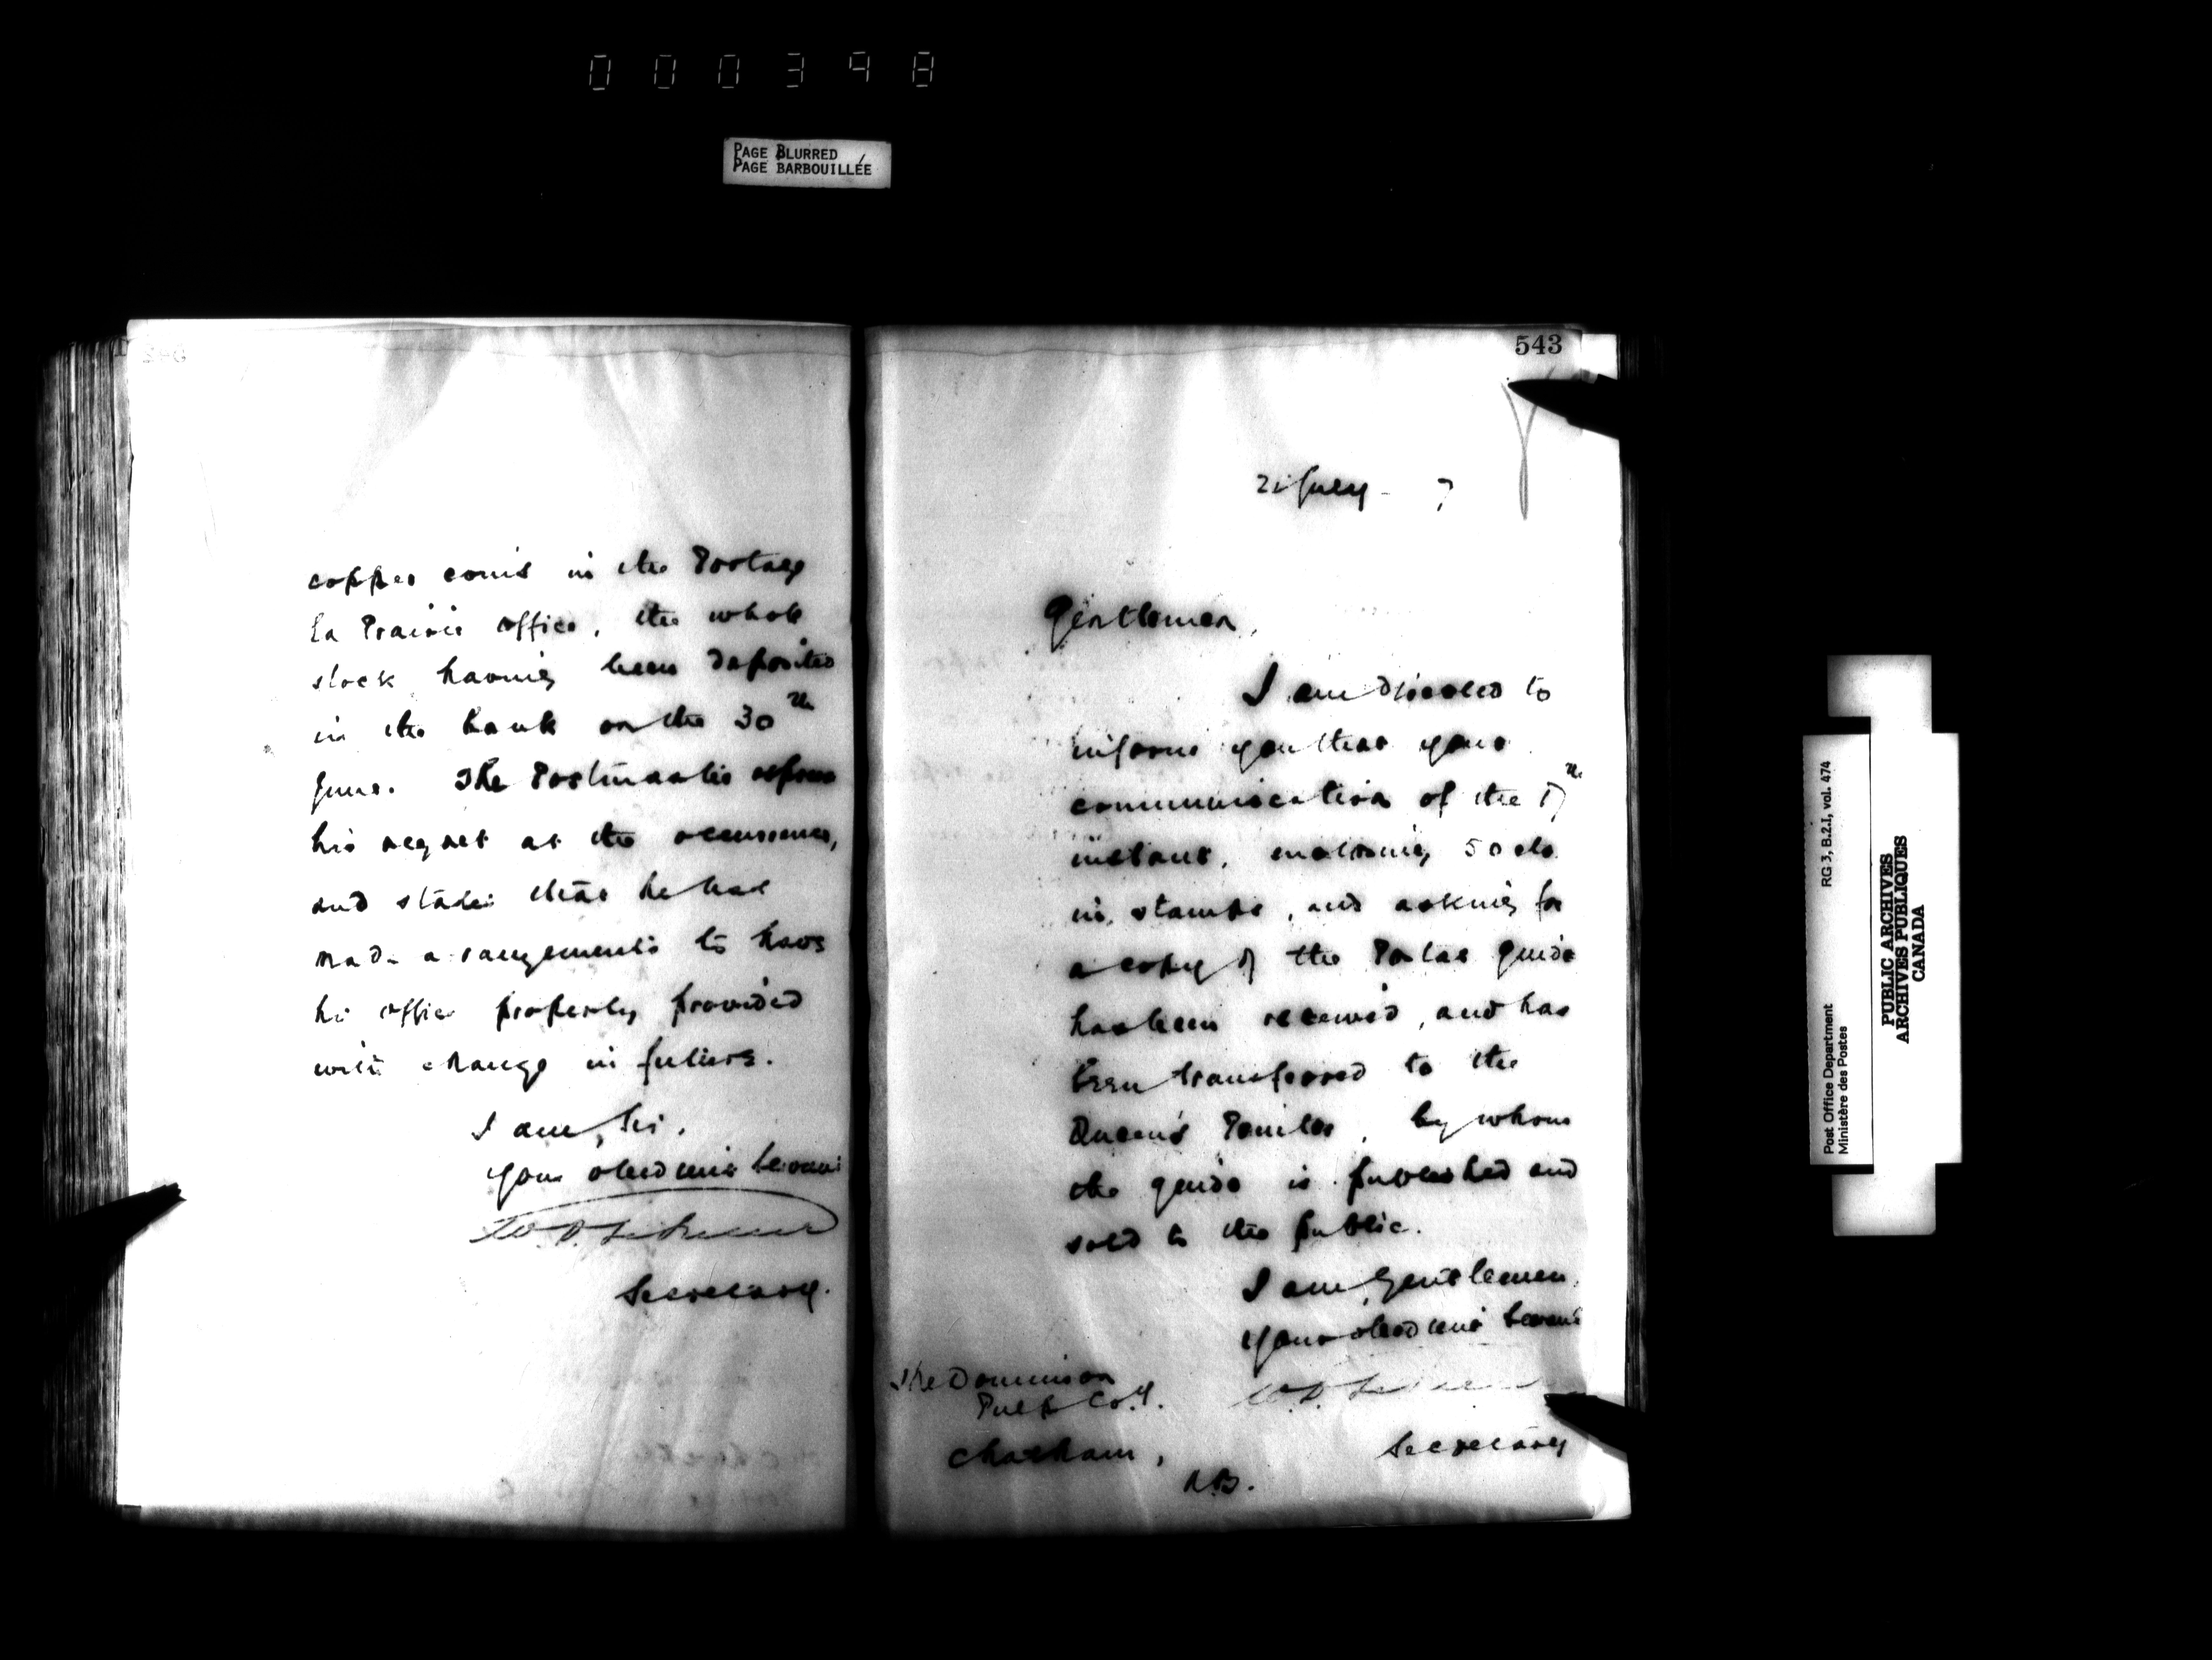 000398
PAGE BLURRED
PAGE BARBOUILLÉE
copper coins in the Portage
La Prairie office, the whole
stock having been deposited
in the bank on the 30th
June. The Postmaster
his regret at the occurrence,
and states that he had
made arrangements to have
his office properly provided
with change in future.
I am, Sir,
Your obedient Servant
Secretary.
543
21 July - 7
Gentlemen,
I am directed to
inform you that your
communication of the 17th
instant, enclosing 50 cts
in stamps, and asking for
a copy of the Postal guide
has been received, and has
been transferred to the
Queen's Printer, by whom
the guide is published and
sold to the public.
I am, Gentlemen,
Your obedient Servant
Secretary
The Dominion
Pulp Coy.
Chatham,
N.B.
Post Office Department RG 3, B.2.I, vol. 474
Ministère des Postes
PUBLIC ARCHIVES
ARCHIVES PUBLIQUES
CANADA